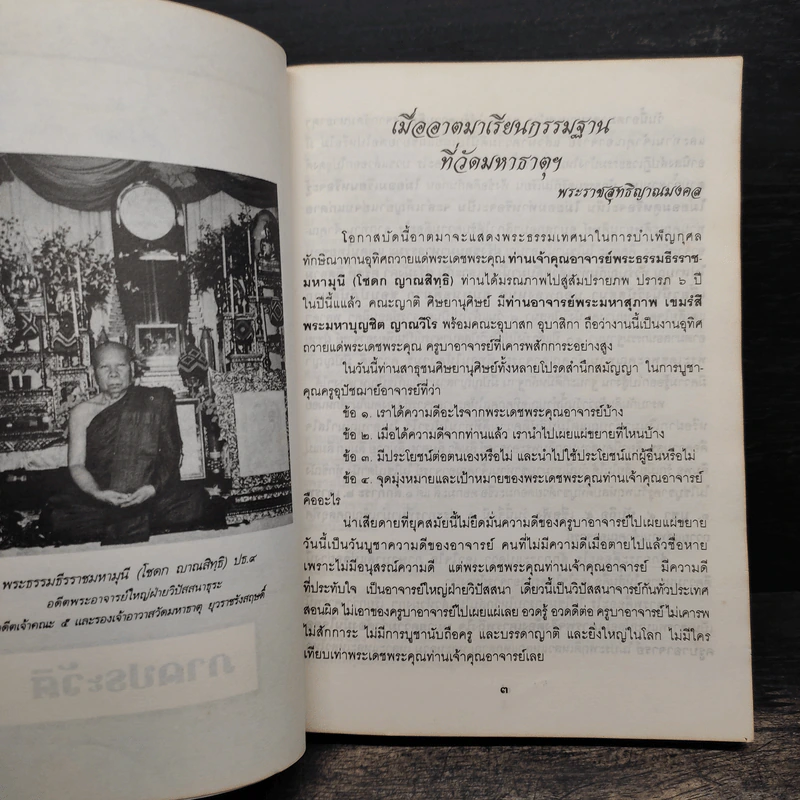 พระธรรมธีรราชมหามุนี (โชดก ญาณสิทฺธิ) ปธ.๙
อดีตพระอาจารย์ใหญ่ฝ่ายวิปัสสนาธุระ
อดีตเจ้าคณะ ๕ และรองเจ้าอาวาสวัดมหาธาตุ ยุวราชรังสฤษดิ์
ภาคประวัติ
เมื่ออาตมาเรียนกรรมฐาน
ที่วัดมหาธาตุฯ
พระราชสุทธิญาณมงคล
โอกาสบัดนี้อาตมาจะแสดงพระธรรมเทศนาในการบำเพ็ญกุศล
ทักษิณาทานอุทิศถวายแด่พระเดชพระคุณ ท่านเจ้าคุณอาจารย์พระธรรมธีรราช-
มหามุนี (โชดก ญาณสิทฺธิ) ท่านได้มรณภาพไปสู่สัมปรายภพ ปรารภ ๖ ปี
ในปีนี้แแล้ว คณะญาติ ศิษยานุศิษย์ มีท่านอาจารย์พระมหาสุภาพ เขมรํสี
พระมหาบุญชิต ญาณวีโร พร้อมคณะอุบาสก อุบาสิกา ถือว่างานนี้เป็นงานอุทิศ
ถวายแด่พระเดชพระคุณ ครูบาอาจารย์ที่เคารพสักการะอย่างสูง
ในวันนี้ท่านสาธุชนศิษยานุศิษย์ทั้งหลายโปรดสำนึกสมัญญา ในการบูชา-
คุณครูอุปัชฌาย์อาจารย์ที่ว่า
ข้อ ๑. เราได้ความดีอะไรจากพระเดชพระคุณอาจารย์บ้าง
ข้อ ๒. เมื่อได้ความดีจากท่านแล้ว เรานำไปเผยแผ่ขยายที่ไหนบ้าง
ข้อ ๓. มีประโยชน์ต่อตนเองหรือไม่ และนำไปใช้ประโยชน์แก่ผู้อื่นหรือไม่
ข้อ ๔. จุดมุ่งหมายและเป้าหมายของพระเดชพระคุณท่านเจ้าคุณอาจารย์
คืออะไร
น่าเสียดายที่ยุคสมัยนี้ไม่ยึดมั่นความดีของครูบาอาจารย์ไปเผยแผ่ขยาย
วันนี้เป็นวันบูชาความดีของอาจารย์ คนที่ไม่มีความดีเมื่อตายไปแล้วชื่อหาย
เพราะไม่มีอนุสรณ์ความดี แต่พระเดชพระคุณท่านเจ้าคุณอาจารย์ มีความดี
ที่ประทับใจ เป็นอาจารย์ใหญ่ฝ่ายวิปัสสนา เดี๋ยวนี้เป็นวิปัสสนาจารย์กันทั่วประเทศ
สอนผิด ไม่เอาของครูบาอาจารย์ไปเผยแผ่เลย อวดรู้ อวดดีต่อ ครูบาอาจารย์ ไม่เคารพ
ไม่สักการะ ไม่มีการบูชานับถือครู และบรรดาญาติ และยิ่งใหญ่ในโลก ไม่มีใคร
เทียบเท่าพระเดชพระคุณท่านเจ้าคุณอาจารย์เลย
๓